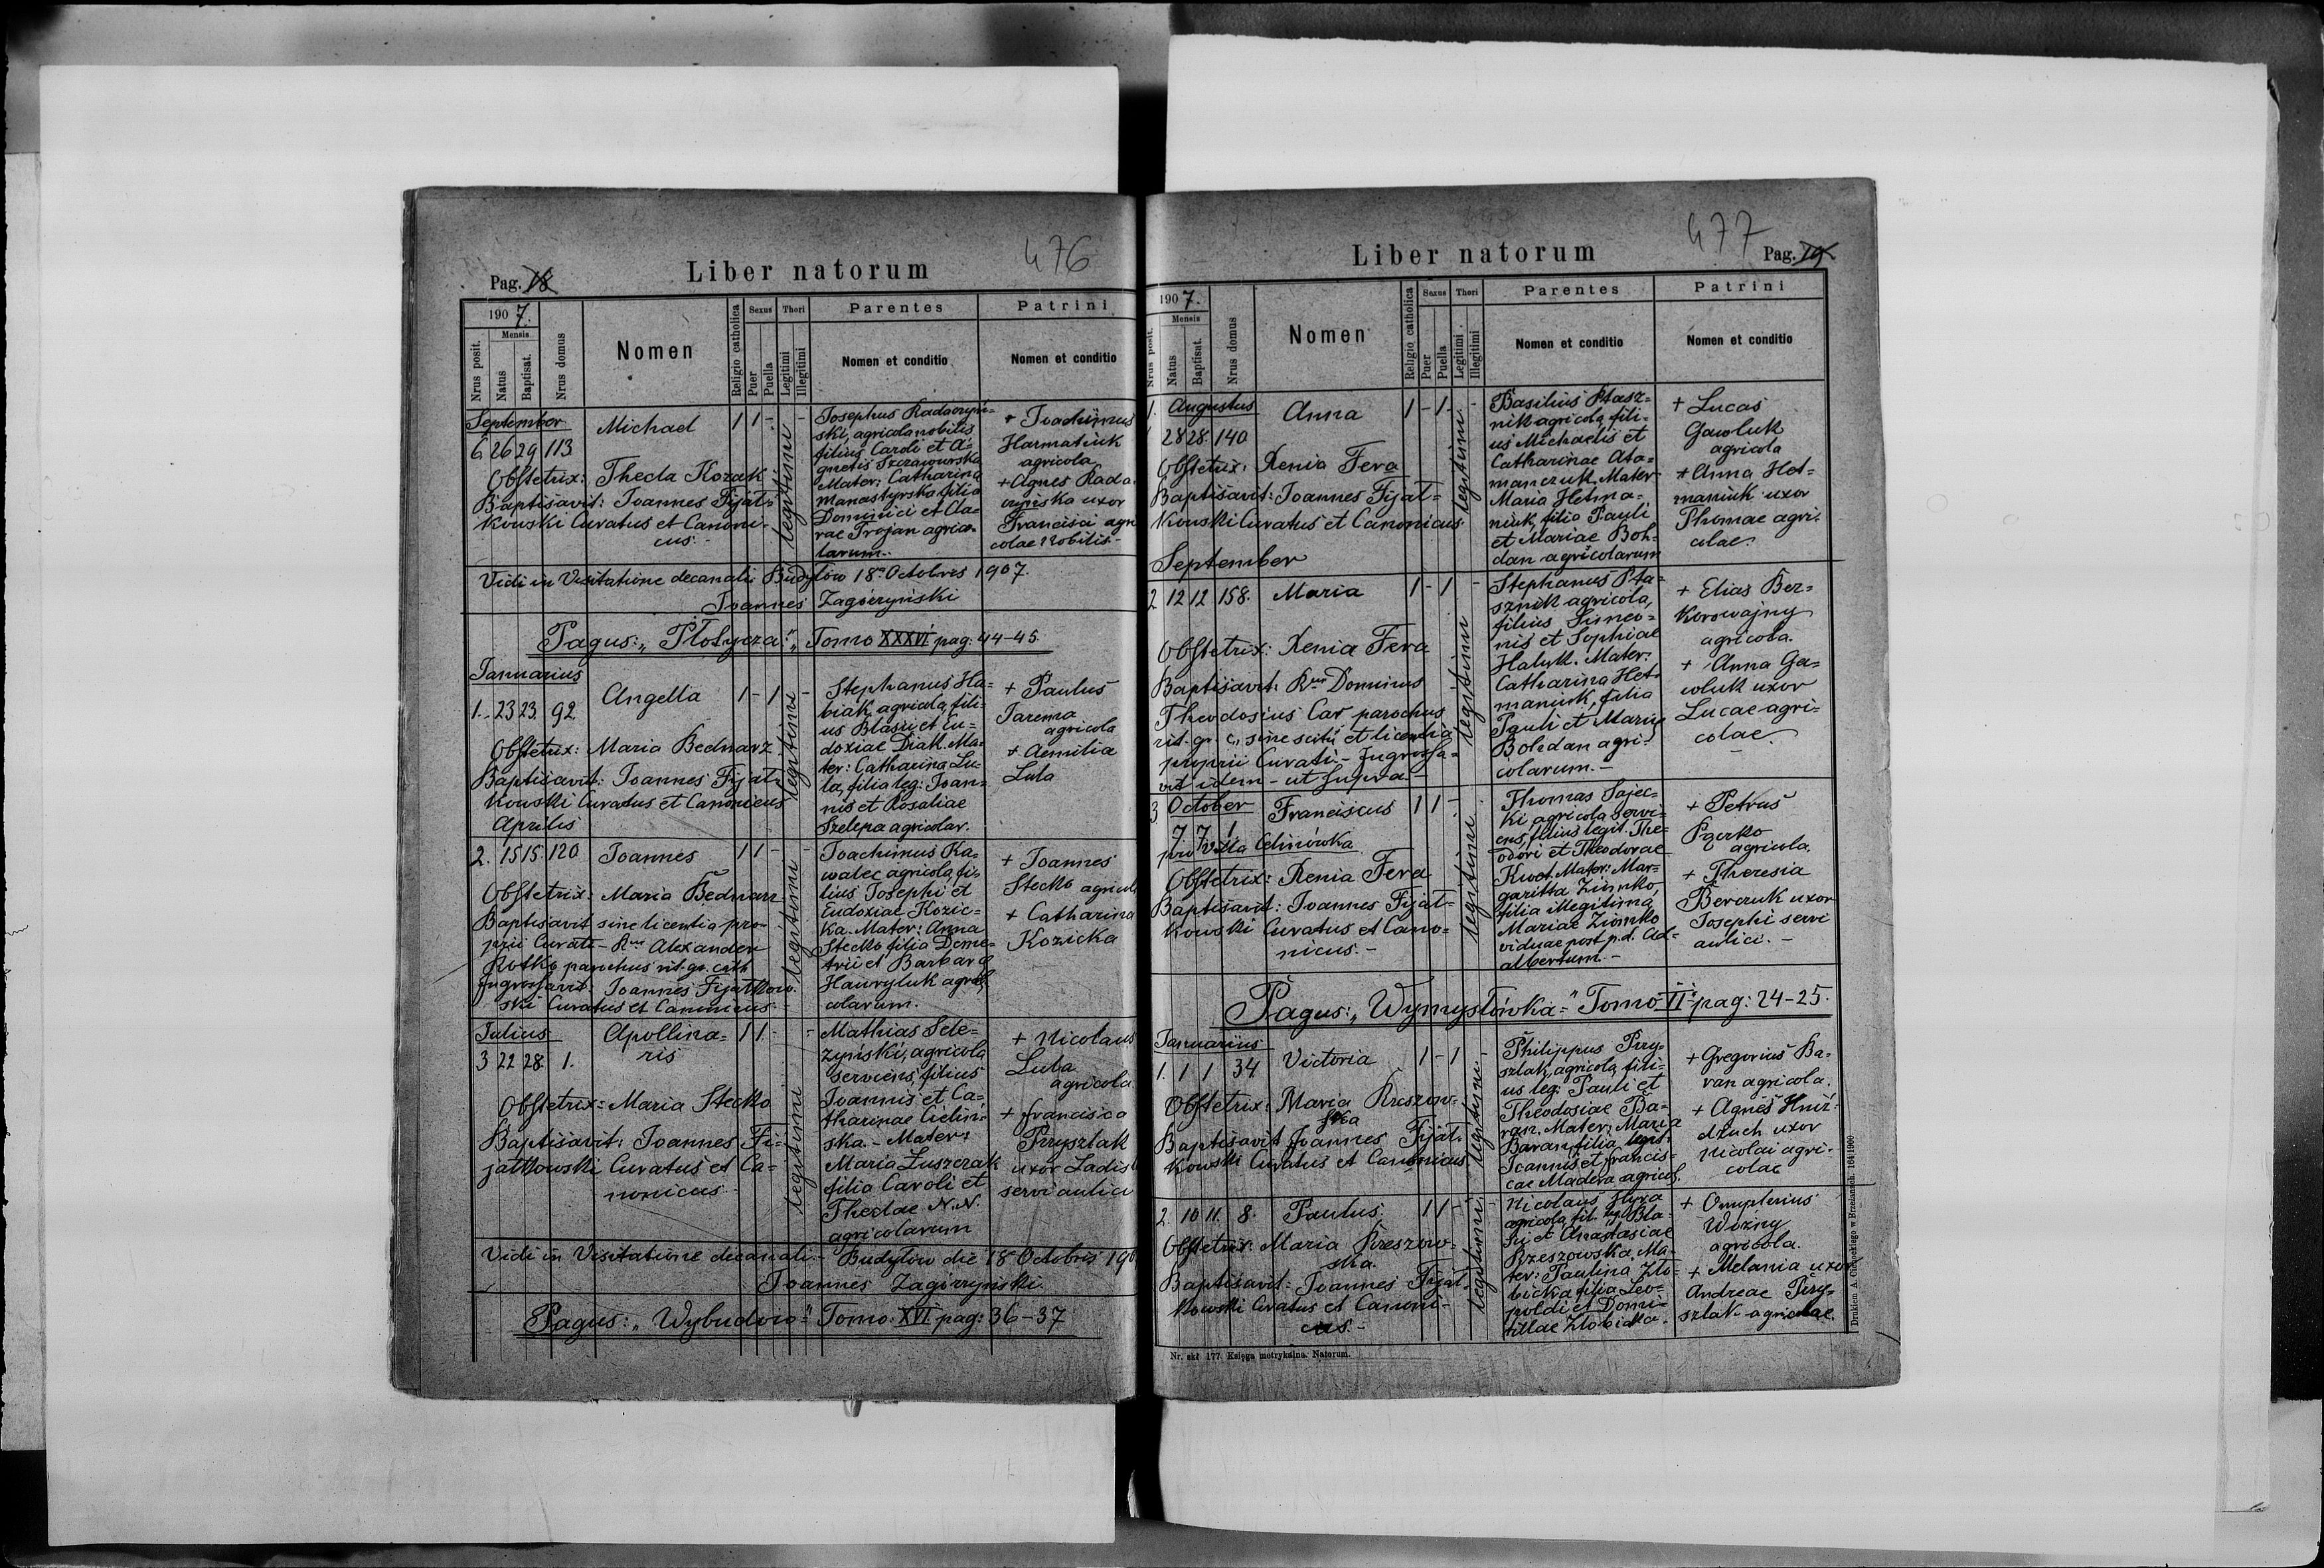 476
Pag. 18
Liber natorum
1907.
Mensis
Nrus posit.
Natus
Baptisat.
Nrus domus
Nomen
Religio catholica
Sexus
Puer
Puella
Thori
Legitimi
Illegitimi
Parentes
Nomen et conditio
Patrini
Nomen et conditio
September
6 26 29 113
Michael
1 1 - legitimi -
Obstetrix: Thecla Kozak
Baptisavit: Joannes Fijał-
kowski Curatus et Canoni-
cus.-
Josephus Radaczyń-
ski, agricola nobilis
filius Caroli et A-
gnetis Szczawurska
Mater: Catharina
Manastyrska filia
Dominici et Cla-
rae Trojan agrico-
larum.-
+ Joachimus
Harmatiuk
agricola
+ Agnes Rada-
czyńska uxor
Francisci agri
colae nobilis.-
Vidi in Visitatione decanali Budyłów 18ª Octobris 1907.
Joannes Zagórzyński
Pagus: „Płotycza:" Tomo XXXVI pag: 44-45.
Januarius
1. 23 23. 92.
Angella
1 - 1 legitimi -
Obstetrix: Maria Bednarz
Baptisavit: Joannes Fijał-
kowski Curatus et Canonicus
Stephanus Ha-
biak, agricola, fili-
us Blasii et Eu-
doxiae Diak. Ma-
ter: Catharina Lu-
ta, filia leg: Joan-
nis et Rosaliae
Szelepa agricolar.
+ Paulus
Jarema
agricola
+ Aemilia
Luta
Aprilis
2. 15 15. 120
Joannes
1 1 - legitimi -
Obstetrix: Maria Bednarz
Baptisavit sine licentia pro-
prii Curati - Rus Alexander
Rotko parochus rit. gr. cath
Ingrossavit: Joannes Fijałkow-
ski Curatus et Canonicus.
Joachimus Ka-
walec agricola, fi-
lius Josephi et
Eudoxiae Kozic-
ka. Mater: Anna
Stecko filia Deme-
trii et Barbara
Hawryluk agri-
colarum.
+ Joannes
Stecko agricola
+ Catharina
Kozicka
Julius
3 22 28. 1.
Apollina-
ris
1 1 - legitimi -
Obstetrix: Maria Stecko
Baptisavit: Joannes Fi-
jałkowski Curatus et Ca-
nonicus.
Mathias Sele-
zyński, agricola
serviens, filius
Joannis et Ca-
tharinae Cieliń-
ska. - Mater:
Maria Łuszczak
filia Caroli et
Theclae N. N.
agricolarum
+ Nicolaus
Luba
agricola.
+ Francisca
Przyszlak
uxor Ladisl
servi aulici
Vidi in Visitatione decanali.- Budyłów die 18 Octobris 190
Joannes Zagórzyński.
Pagus: „Wybudów:" Tomo: XVI pag: 36-37
477
Liber natorum
Pag. 19
1907.
Mensis
Nrus posit.
Natus
Baptisat.
Nrus domus
Nomen
Religio catholica
Sexus
Puer
Puella
Thori
Legitimi
Illegitimi
Parentes
Nomen et conditio
Patrini
Nomen et conditio
1. Augustus
28 28. 140
Anna
1 - 1. legitimi -
Obstetrix: Xenia Fera
Baptisavit: Joannes Fijał-
kowski Curatus et Canonicus.
Basilius Ptasz-
nik agricola, fili-
us Michaelis et
Catharinae Ata-
manczuk. Mater
Maria Hetma-
niuk, filia Pauli
et Mariae Boh-
dan agricolarum
+ Lucas
Gawluk
agricola
+ Anna Het-
maniuk uxor
Thomae agri-
colae.
September
2 12 12 158.
Maria
1 - 1 legitimi -
Obstetrix: Xenia Fera
Baptisavit: Rus Dominus
Theodosius Car parochus
rit. gr. c., sine scitu et licentia
proprii Curati.- Ingrossa-
vit idem - ut supra -
Stephanus Pta-
sznik agricola,
filius Simeo-
nis et Sophiae
Haluk. Mater:
Catharina Het-
maniuk, filia
Pauli et Mariae
Bohdan agri-
colarum.-
+ Elias Bez-
korowajny
agricola.
+ Anna Ga-
wluk uxor
Lucae agri-
colae.
3 October
7 7 1
pro villa Celinówka
Franciscus
1 1 - legitimi -
Obstetrix: Xenia Fera
Baptisavit: Joannes Fijał-
kowski Curatus et Cano-
nicus.-
Thomas Sajec-
ki agricola servi-
ens, filius legit. The-
odori et Theodorae
Kwot. Mater: Mar-
garitta Zimko,
filia illegitima
Mariae Zimko
viduae post p.d. Ad-
albertum.-
+ Petrus
Paczko
agricola,
+ Theresia
Berczuk uxor
Josephi servi
aulici.-
Pagus: „Wymysłówka=" Tomo II pag: 24-25.
Januarius
1. 1 1 34
Victoria
1 - 1 legitimi -
Obstetrix: Maria Rzeszow-
ska
Baptisavit Joannes Fijał-
kowski Curatus et Canonicus
Philippus Przy-
szlak, agricola, fili-
us leg: Pauli et
Theodosiae Ba-
ran. Mater: Maria
Baran, filia legit:
Joannis et Francis-
cae Madera agricol.
+ Gregorius Ba-
ran agricola.
+ Agnes Hniz-
dzuch uxor
Nicolai agri-
colae
2. 10 11. 8.
Paulus.
1 1 - legitimi -
Obstetrix: Maria Rzeszow-
ska.
Baptisavit: Joannes Fijał-
kowski Curatus et Canoni-
cus.-
Nicolaus Hyra
agricola, fil. leg. Bla-
sii et Anastasiae
Rzeszowska. Ma-
ter: Paulina Zło-
bicka filia Leo-
poldi et Domi-
tillae Złobicka.
+ Onuphrius
Woźny
agricola.
+ Melania uxor
Andreae Przy-
szlak agricolae.
Nr. skł. 177. Księga metrykalna. Natorum.